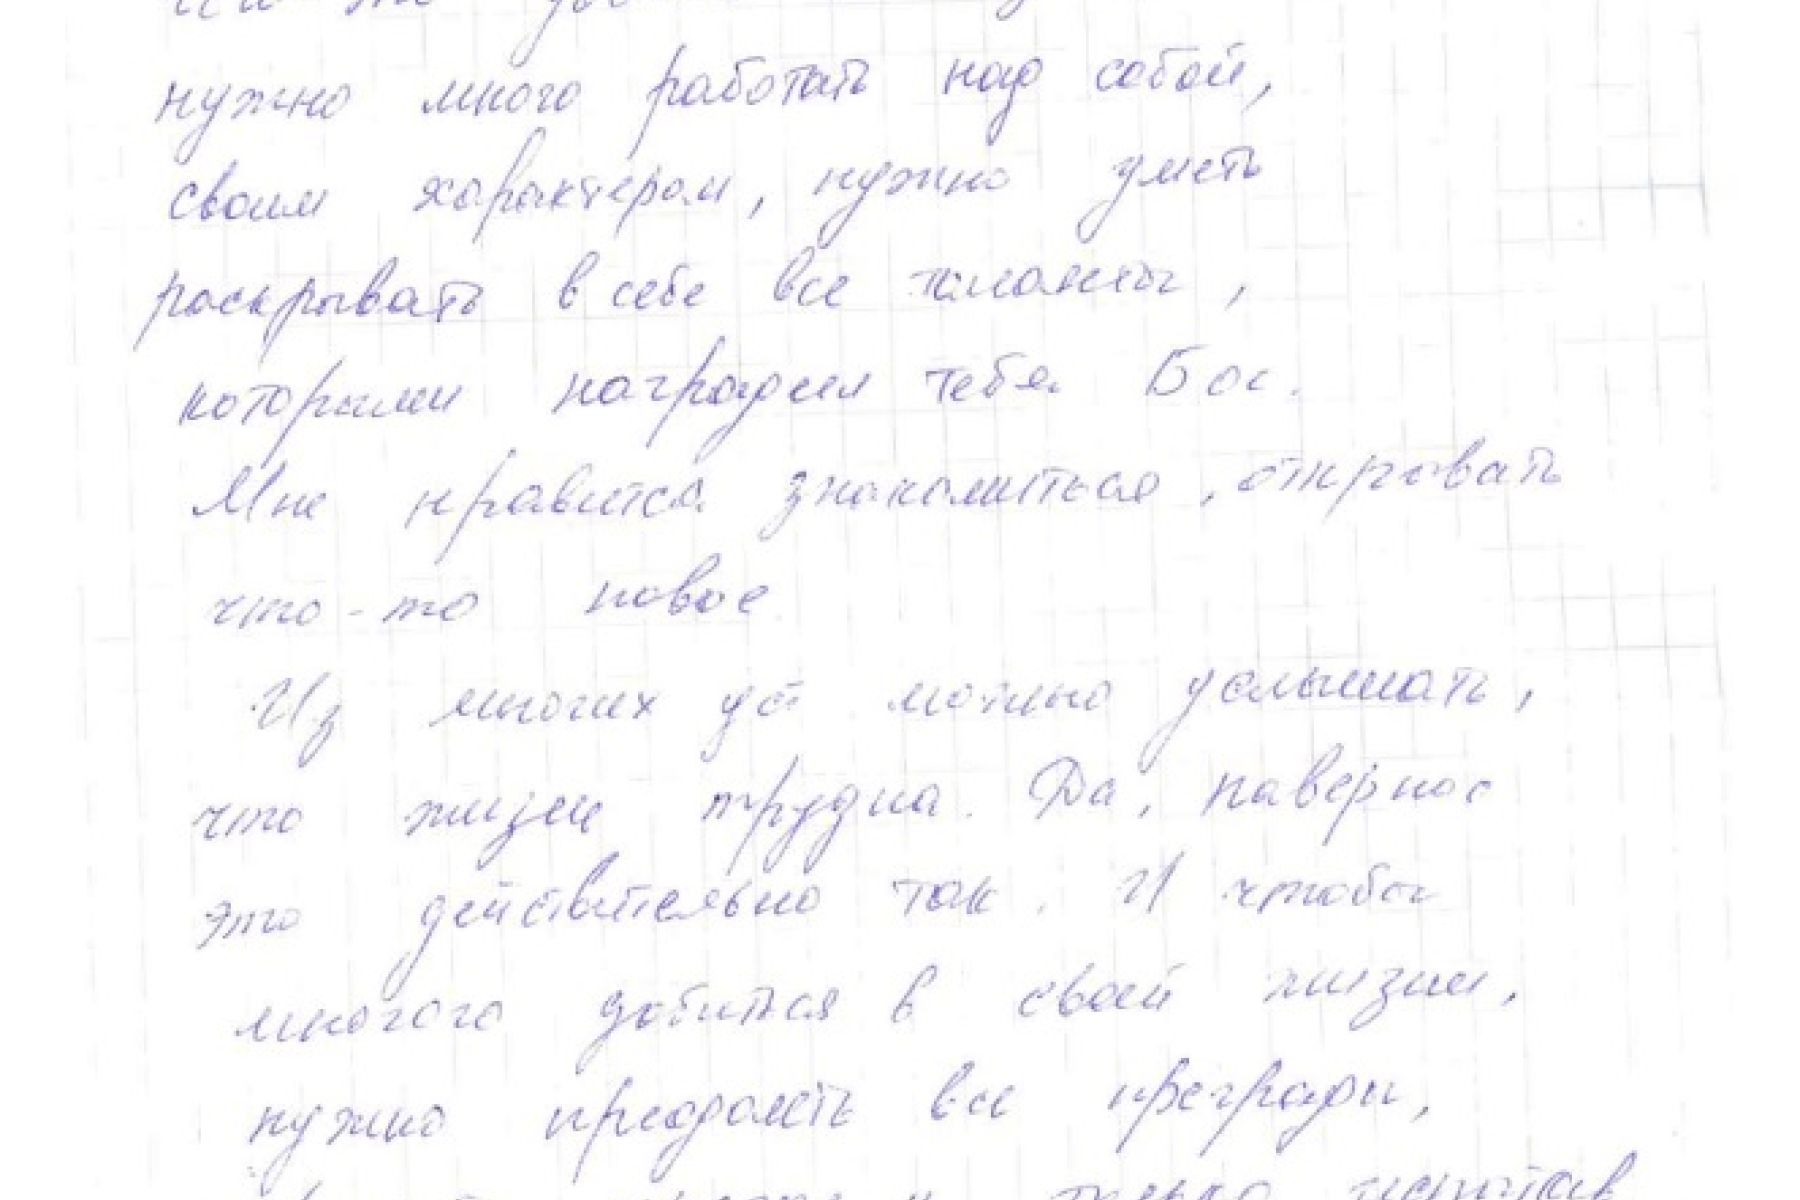 нужно много работать над собой,
своим характером, нужно уметь
раскрывать в себе все таланты,
которыми наградил тебя Бог.
Мне нравится знакомиться, открывать
что-то новое
Из многих уст можно услышать,
что жизнь трудна. Да, наверное
это действительно так. И чтобы
многого добиться в своей жизни,
нужно преодолеть все преграды,
только испытав